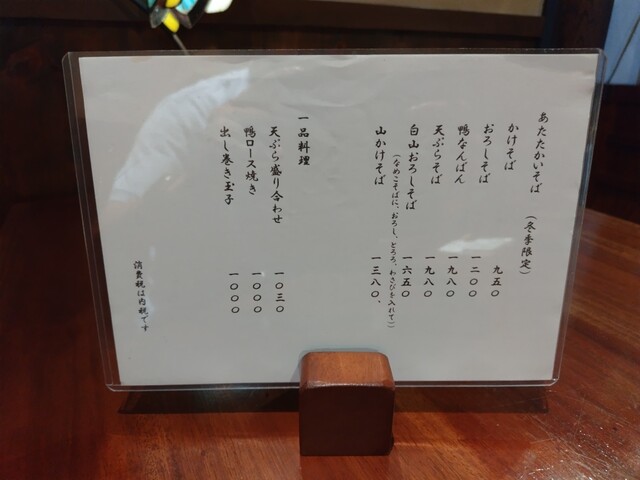 あたたかいそば (冬季限定)
かけそば 九五〇
おろしそば 一二〇〇
鴨なんばん 一九八〇
天ぷらそば 一九八〇
白山おろしそば 一六五〇
(なめこそばに、おろし、とろろ、わさびを入れて)
山かけそば 一三八〇
一品料理
天ぷら盛り合わせ 一〇三〇
鴨ロース焼き 一〇〇〇
出し巻き玉子 一〇〇〇
消費税は内税です